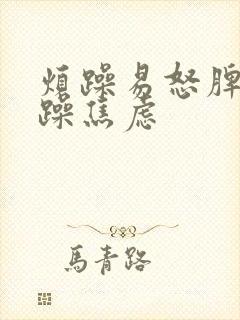 煩躁易怒脾
躁焦虑
馬青路